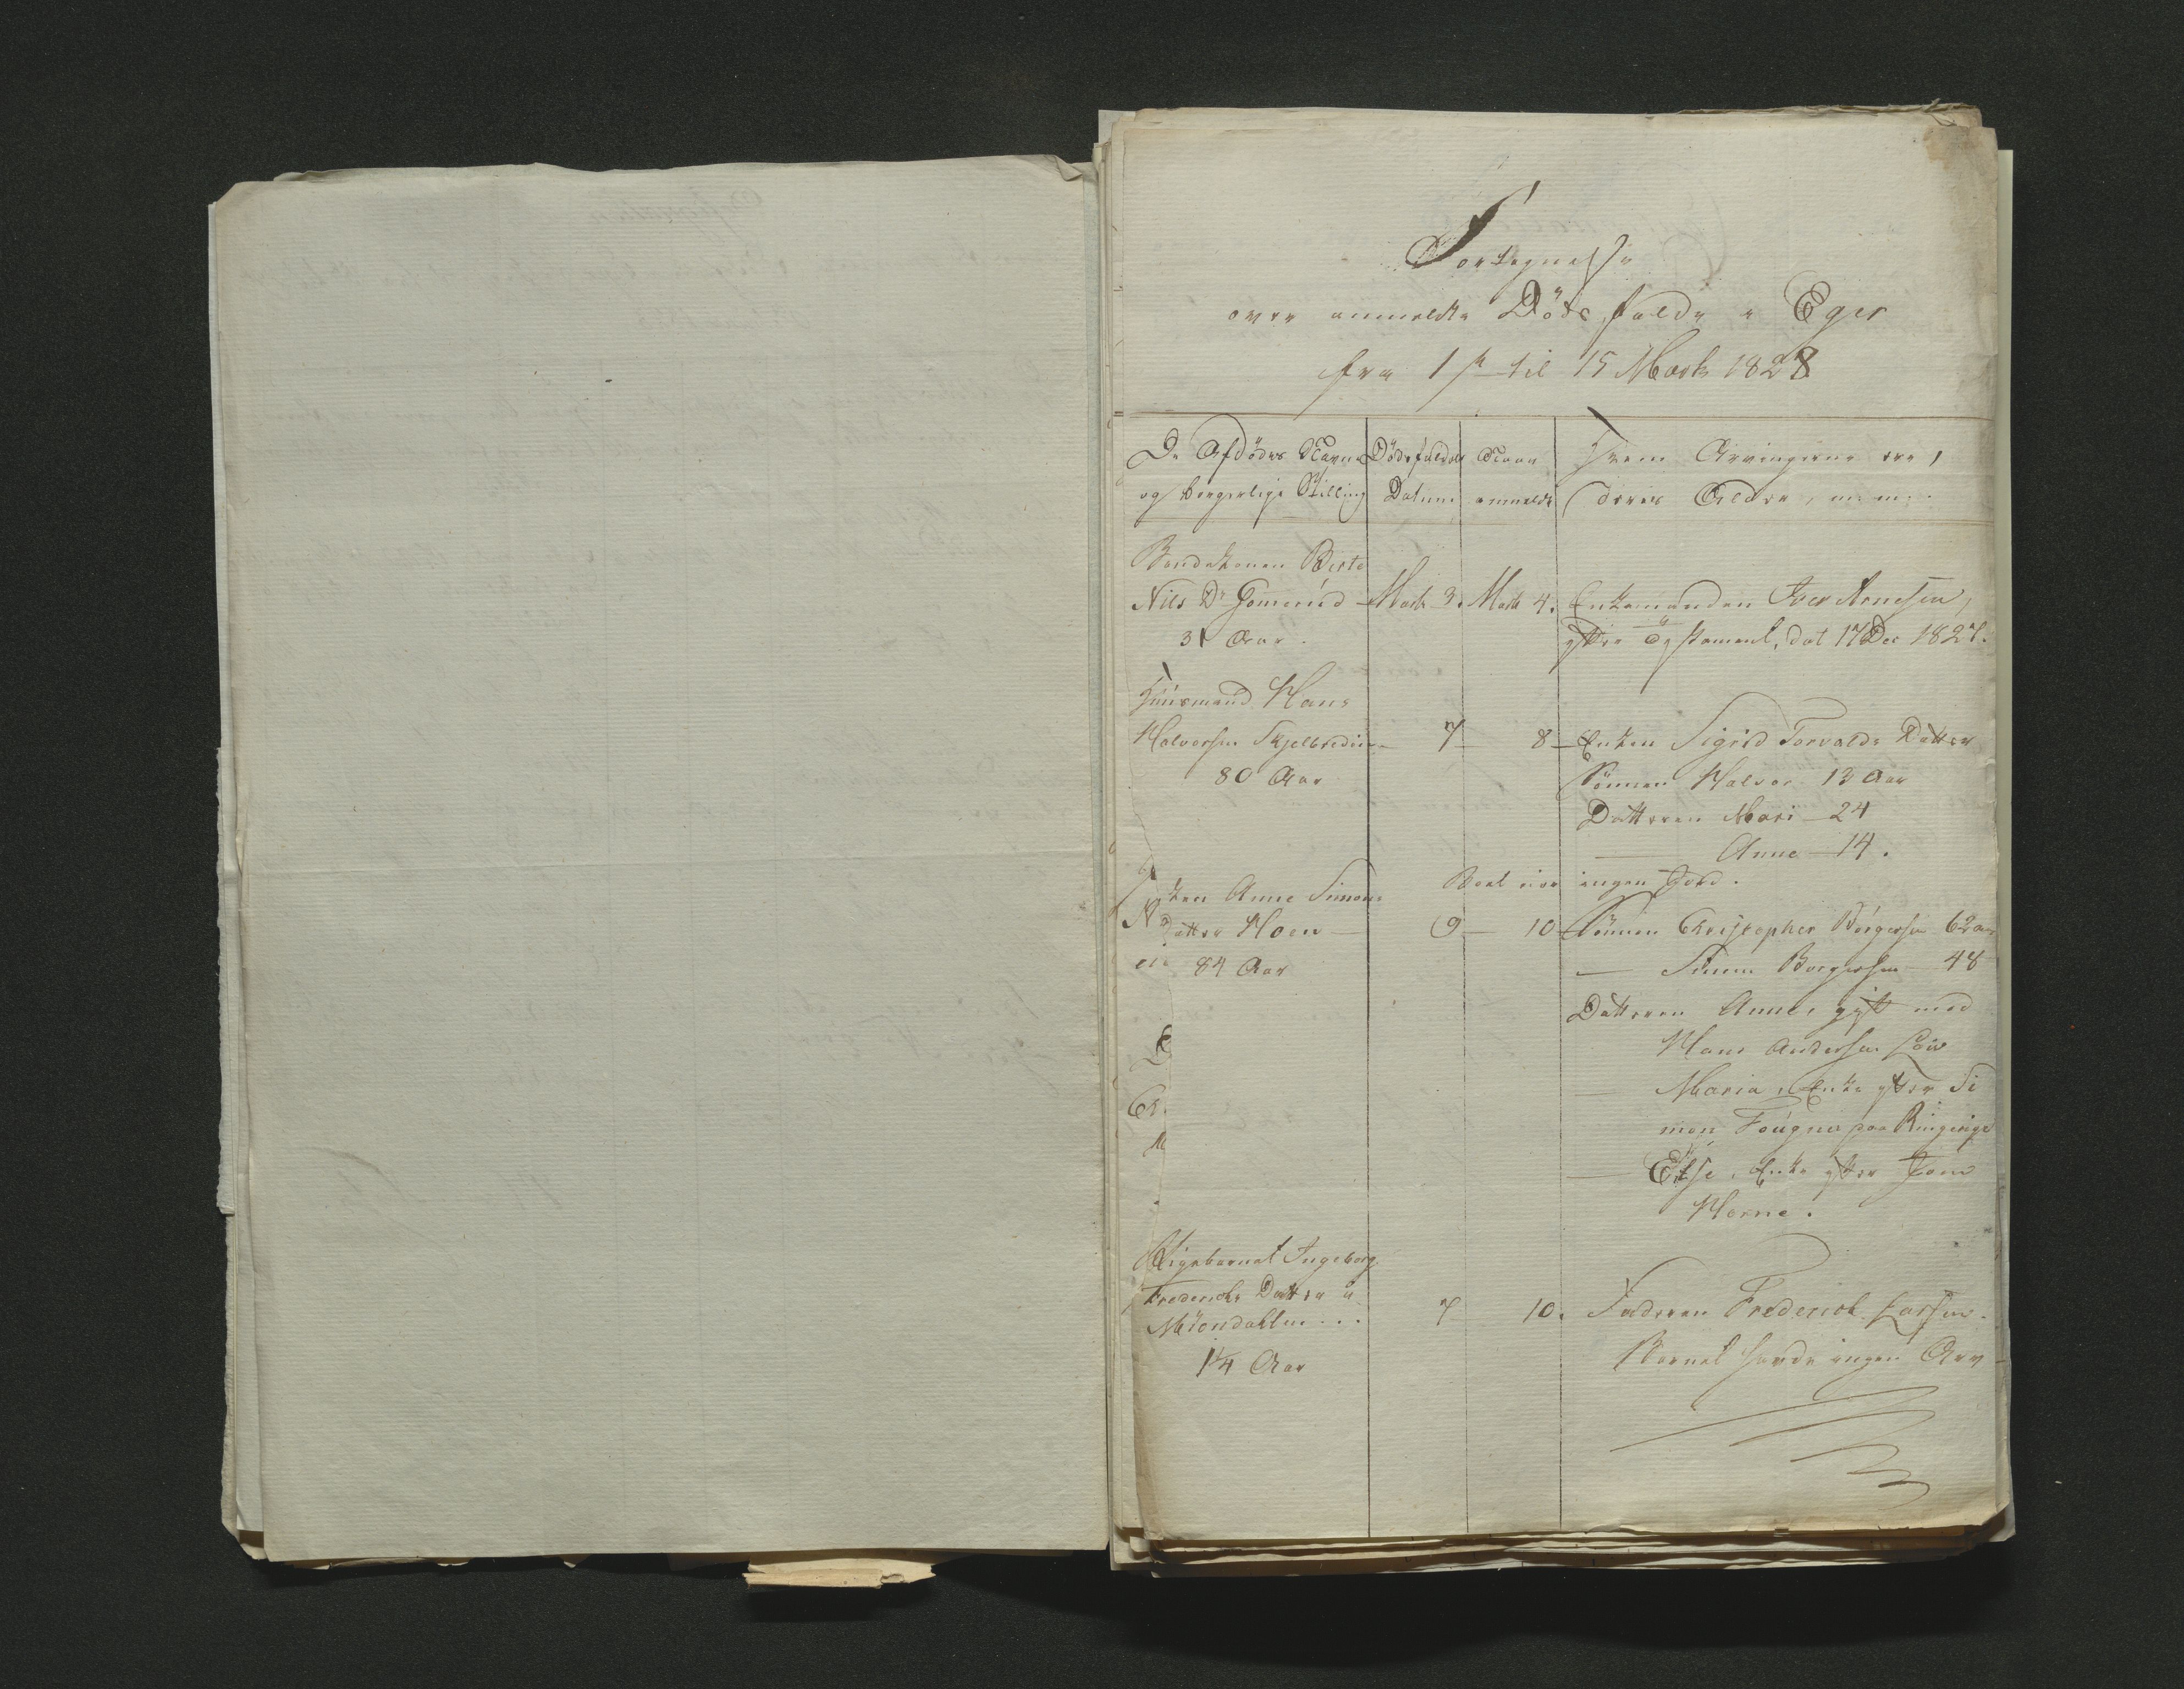 Fortegnelse
over anmeldte Döds falde i Eger
fra 1ste til 15 Marts 1828
De Afdödes Navne
og borgerlige Stilling
Dödsfaldets
Datum
Naar
anmeldt
Hvem Arvingerne ere,
deres Aldere, m: m:
Bondekonen Berte
Nils Dr Gomsrud - Marts 3. Marts 4. Enkemanden Iver Arnesen,
31 Aar.
efter Testament, dat 17 Dec 1827.
Huusmand Hans
Halvorsen Skjelbredeie - 7 - 8 - Enken Sigrid Torvalds Datter
80 Aar
Sönnen Halvor 13 Aar
Datteren Mari - 24
— Anne - 14.
Boet eier ingen Jord.
ken Anne Simons
Datter Hoen - 9 - 10 - Sönnen Christopher Börgersen 62 aar
84 Aar
— Simen Borgersen - 48
Datteren Anne, gift med
Hans Andersen
— Maria, Enke efter Si
mon Fougner paa Ringerige
— Else, Enke efter
Horne.
Pigebarnet Ingeborg
Fredericks Datter i
Miöndahlen ... 7 10. Faderen Frederick Larsen.
1¼ Aar
Barnet havde ingen Arv